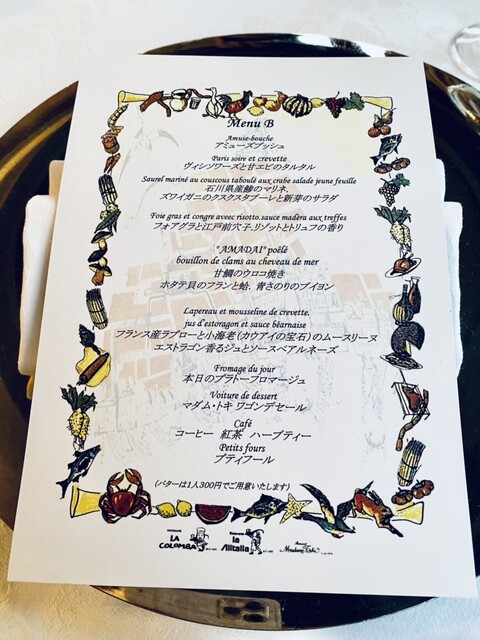 Menu B
Amuse-bouche
アミューズブッシュ
Paris soire et crevette
ヴィシソワーズと甘エビのタルタル
Saurel mariné au couscous taboulé aux crabe salade jeune feuille
石川県産鯵のマリネ、
ズワイガニのクスクスタブーレと新芽のサラダ
Foie gras et congre avec risotto.sauce madèra aux treffes
フォアグラと江戸前穴子.リゾットとトリュフの香り
"AMADAI" poêlé
bouillon de clams au cheveau de mer
甘鯛のウロコ焼き
ホタテ貝のフランと蛤、青さのりのブイヨン
Lapereau et mousseline de crevette.
jus d'estoragon et sauce béarnaise
フランス産ラプローと小海老(カウアイの宝石)のムースリーヌ
エストラゴン香るジュとソースベアルネーズ
Fromage du jour
本日のプラトーフロマージュ
Voiture de dessert
マダム・トキ ワゴンデセール
Café
コーヒー 紅茶 ハーブティー
Petits fours
プティフール
(バターは1人300円でご用意いたします)
LA COLOMBA
la Alitalia
Madame Toki